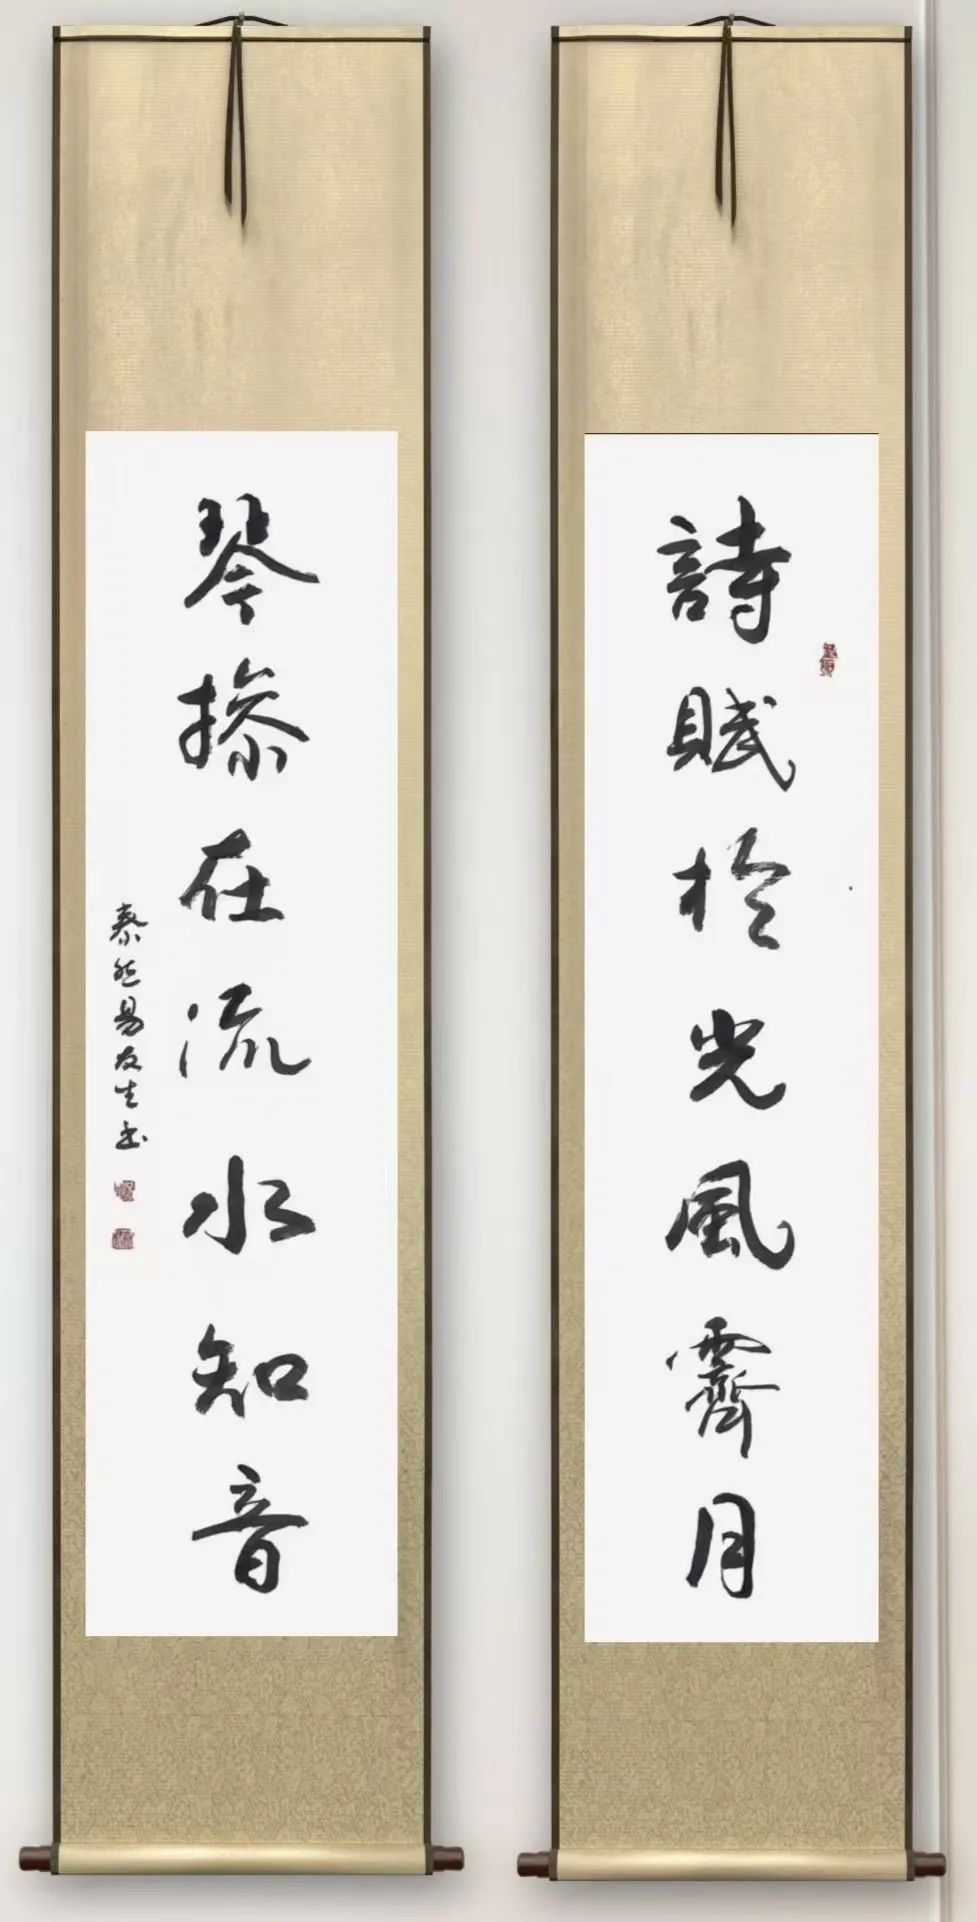 詩賦於光風霽月
琴操在流水知音
泰然易友生书